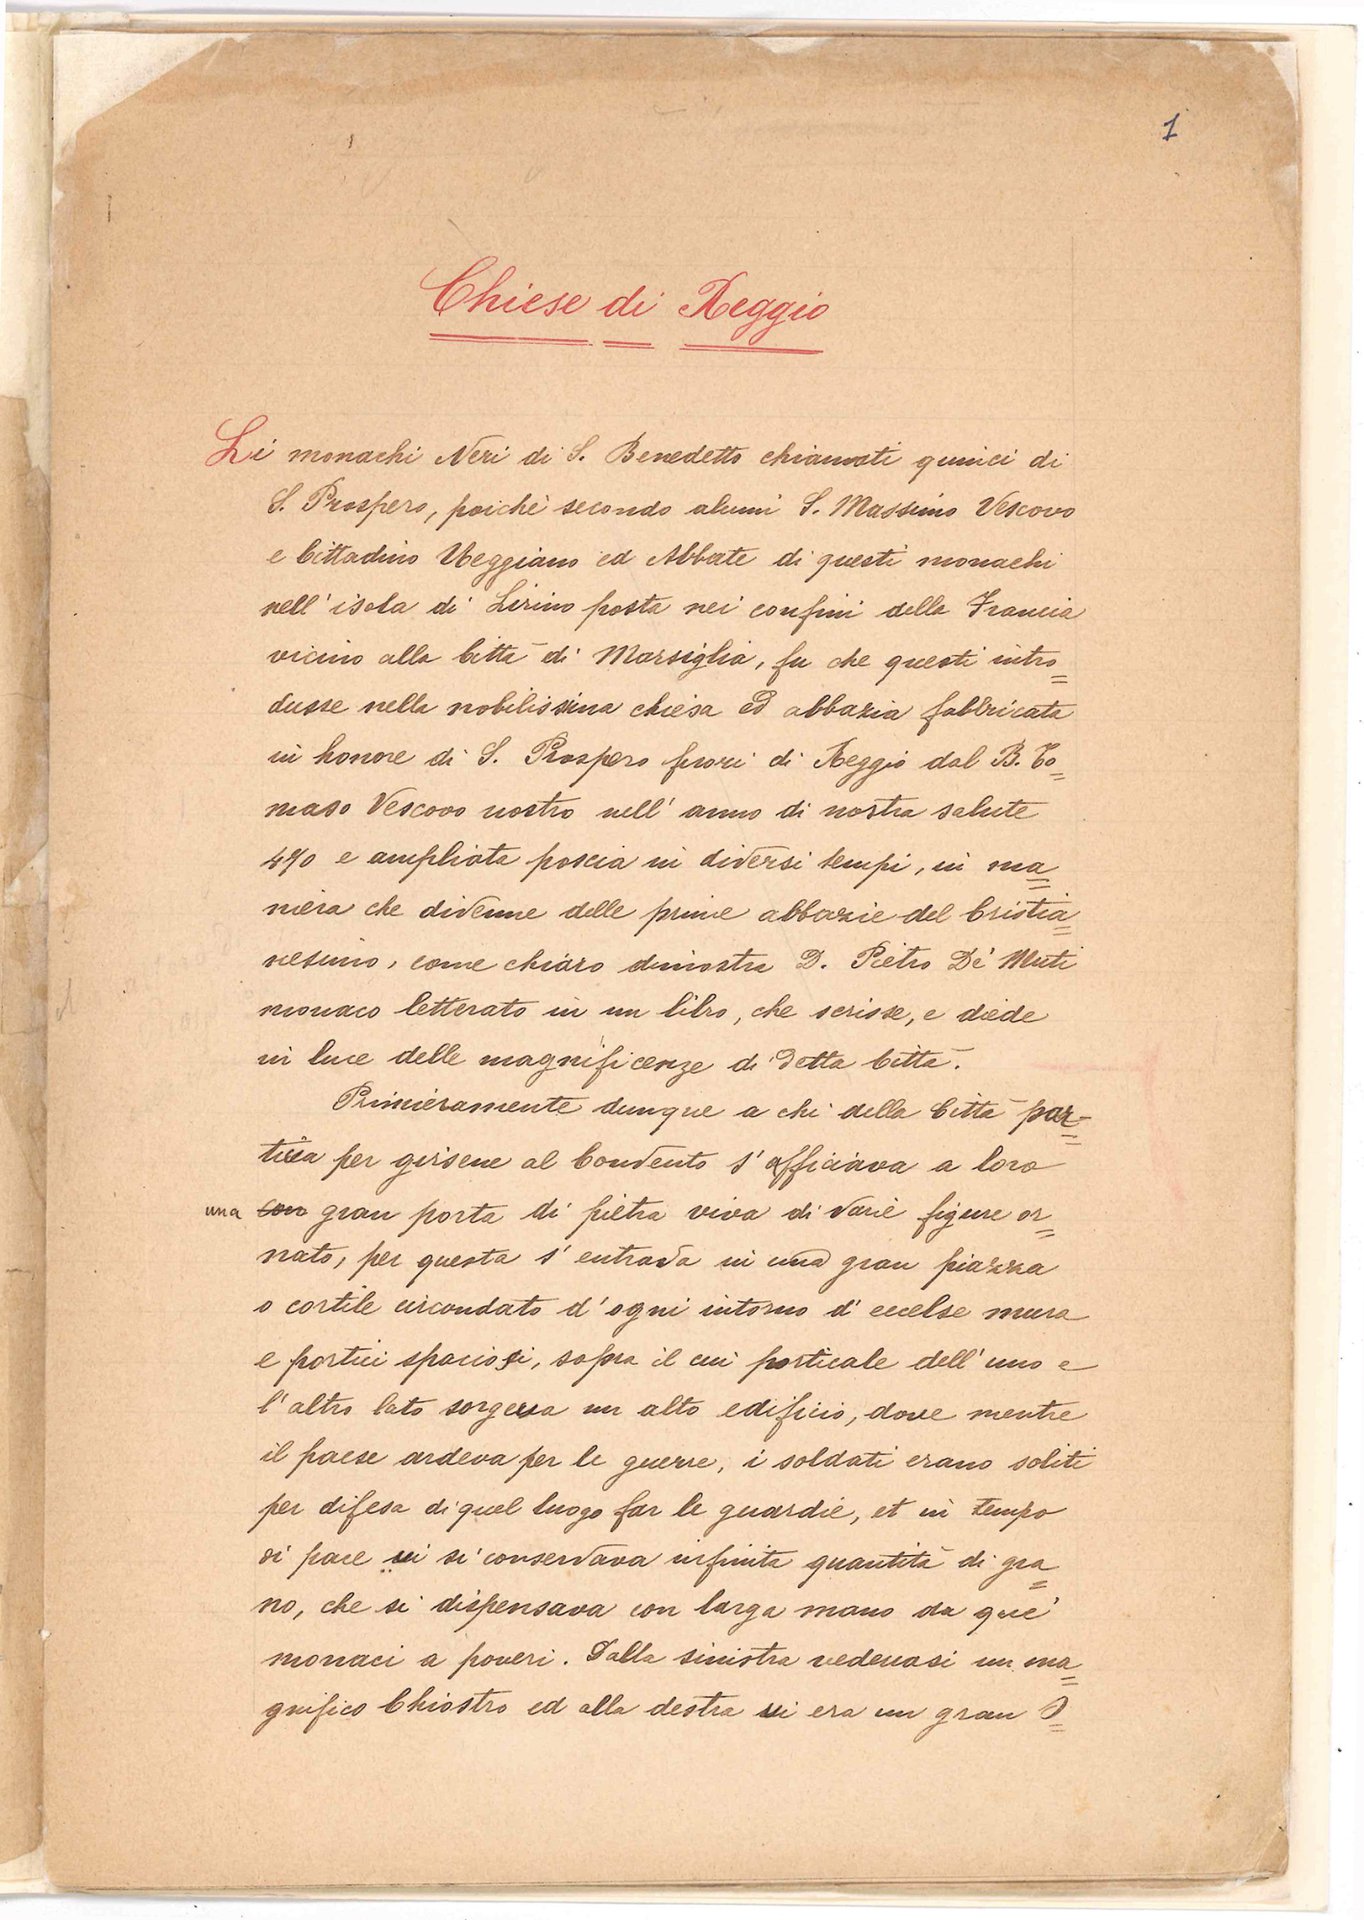 1
Chiese di Reggio
Li monachi Neri di S. Benedetto chiamati quinci di
S. Prospero, poichè secondo alcuni S. Massimo Vescovo
e Cittadino Reggiano ed Abbate di questi monachi
nell'isola di Lirino posta nei confini della Francia
vicino alla Città di Marsiglia, fu che questi intro=
dusse nella nobilissima chiesa ed abbazia fabbricata
in honore di S. Prospero fuori di Reggio dal B. To=
maso Vescovo nostro nell'anno di nostra salute
490 e ampliata poscia in diversi tempi, in ma=
niera che divenne delle prime abbazie del Cristia=
nesimo, come chiaro dimostra D. Pietro De' Muti
monaco letterato in un libro, che scrisse, e diede
in luce delle magnificenze di detta Città.
Primieramente dunque a chi della Città par=
tiva per girsene al Convento s'officiava a loro
una con gran porta di pietra viva di varie figure or=
nato, per questa s'entrava in una gran piazza
o cortile circondato d'ogni intorno d'eccelse mura
e portici spaciosi, sopra il cui porticale dell'uno e
l'altro lato sorgeva un alto edificio, dove mentre
il paese ardeva per le guerre, i soldati erano soliti
per difesa di quel luogo far le guardie, et in tempo
di pace vi si conservava infinita quantità di gra=
no, che si dispensava con larga mano da que'
monaci a poveri. Dalla sinistra vedevasi un ma=
gnifico Chiostro ed alla destra vi era un gran